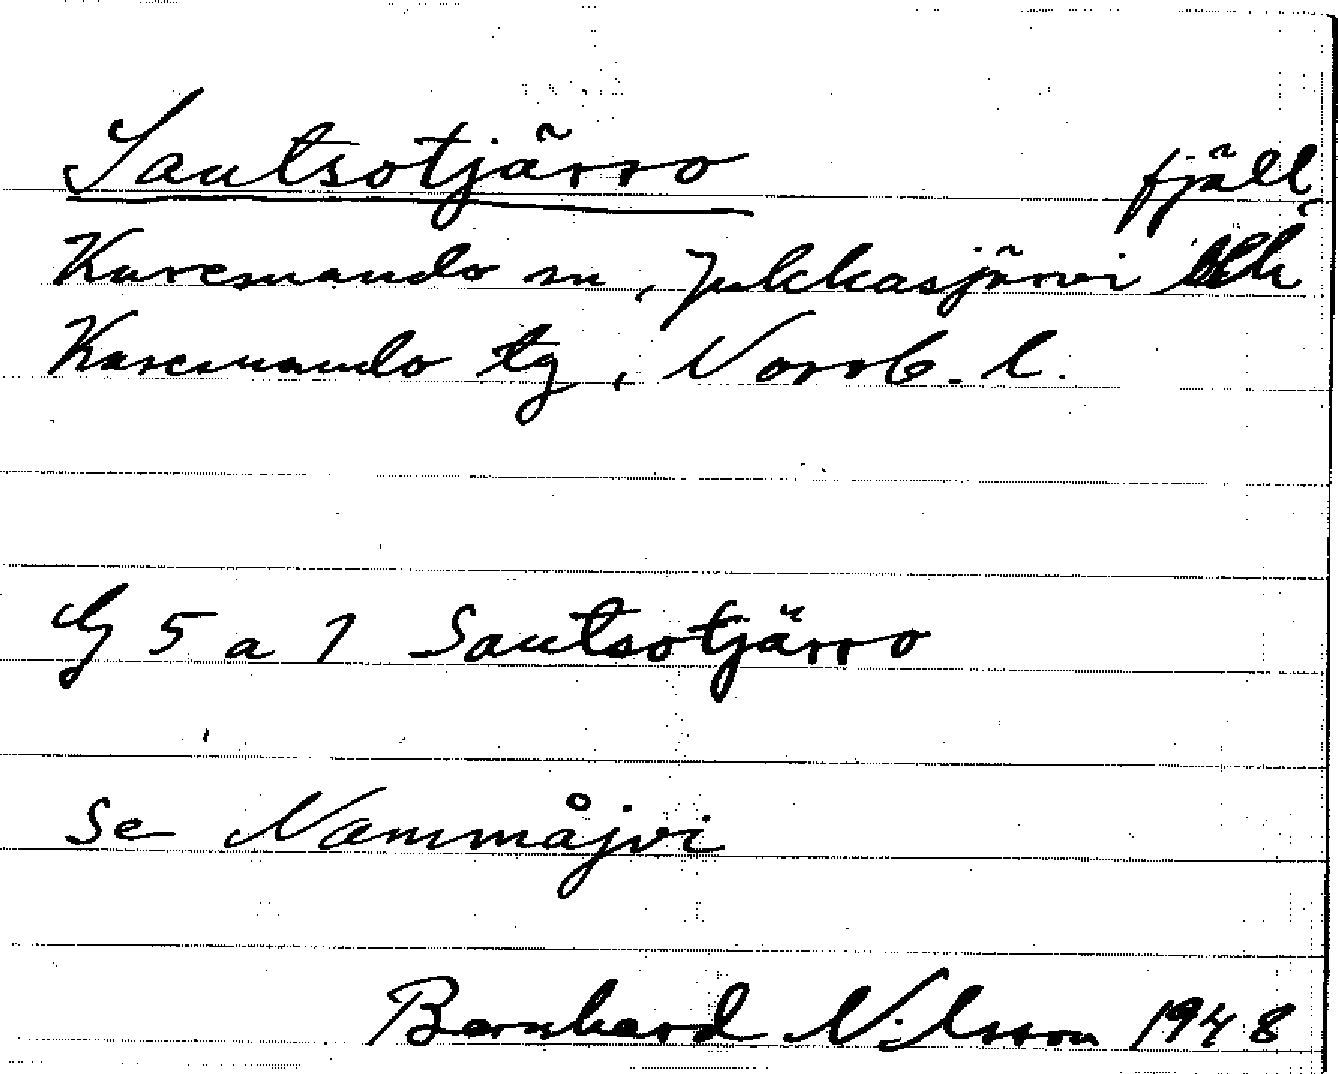 Sautsotjärro fjäll
Karesuando sn, Jukkasjärvi
Karesuando tg, Norrb. l.
G 5 a 1 Sautsotjärro
Se Nammåjvi
Bernhard Nilsson 1948